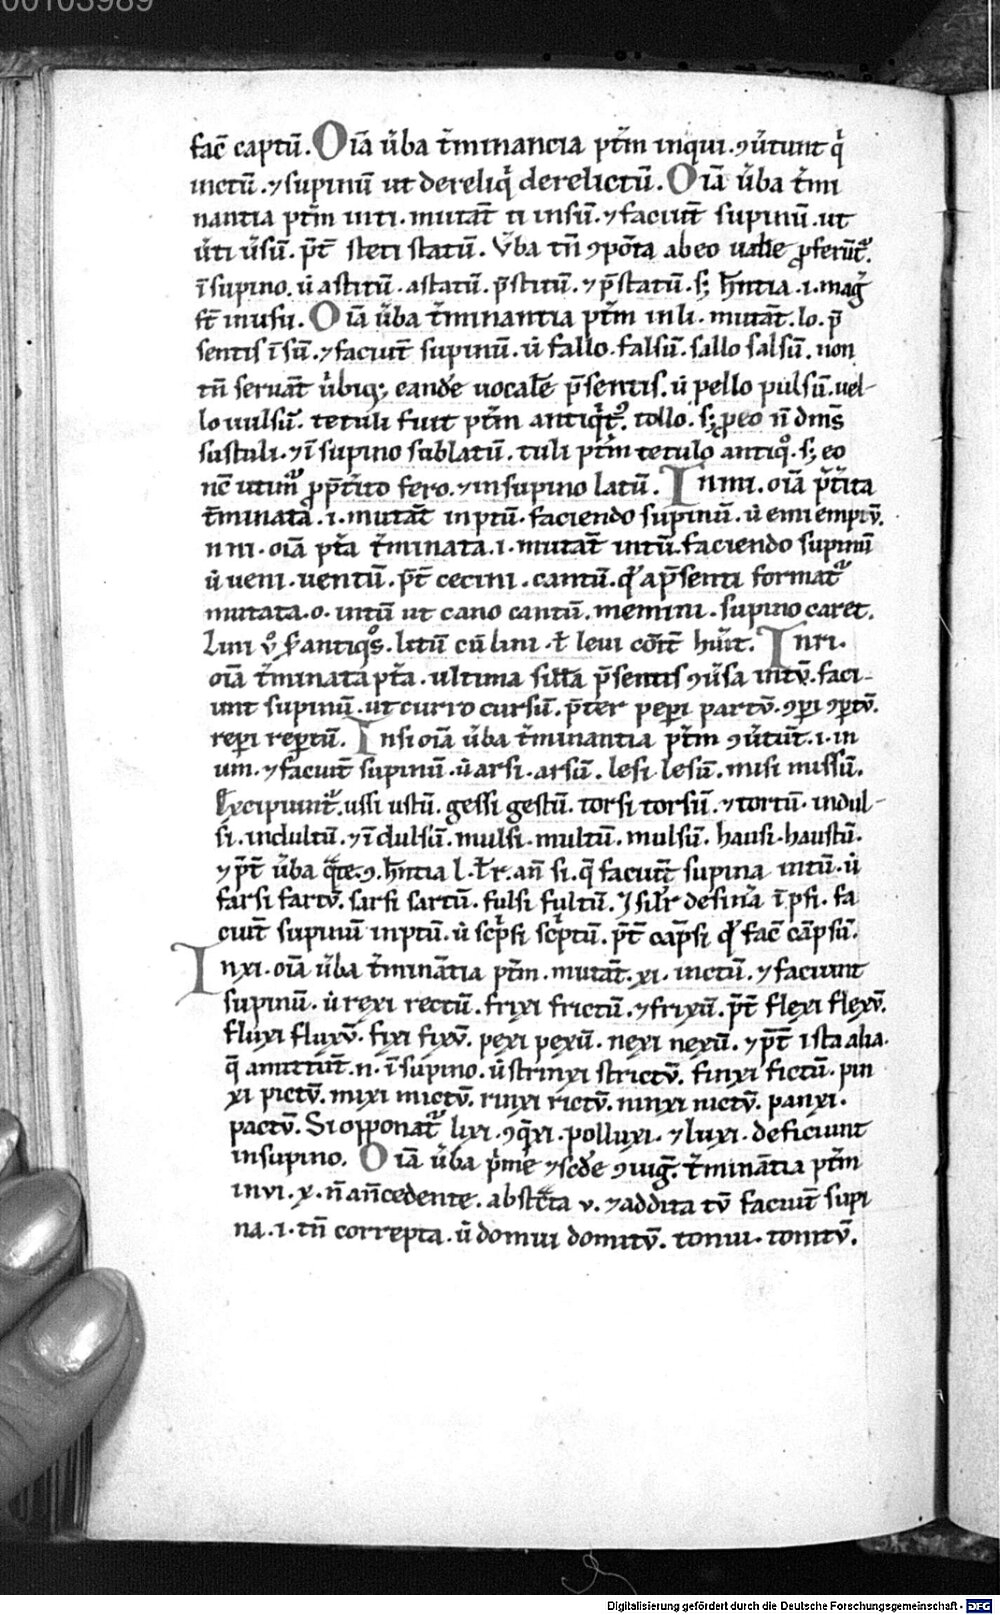 00103989
fac̄ captū. Oīa u̾ba t̄minancia pt̄m inqui. ꝯu̾tunt q̇
inctū. ⁊ supinū ut dereliq̇ derelictū. Oīa u̾ba t̄mi
nantia pt̄m inti. mutāt ti insū. ⁊ faciūt supinū. ut
u̾ti u̾sū. p̄t̄ steti statū. V̾ba tn̄ ꝯpōıta ab eo ualde ꝓferūt᷑.
ī supino. u̇ astitū. astatū. p̄stitū. ⁊ p̄statū. s; h̄ntia .i. mag̾
st̄ in usu. Oīa u̾ba t̄minantia pt̄m in li. mutāt. lo. p̄
sentis ī sū. ⁊ faciūt supinū. u̇ fallo. falsū. sallo salsū. non
tn̄ seruāt u̾biq; eandē uocalē p̄sentis. u̇ pello pulsū. uel-
lo uulsū. tetuli fuit pt̄m antiq̇t᷑. tollo. s; ꝓ eo n̄ dm̄s
sustuli. ⁊ ī supino sublatū. tuli pt̄m tetulo antiq̊. s; eo
nc̄ utim᷑ ꝓ p̄t̾ito fero. ⁊ in supino latū. In mi. oīa p̄t̾ita
t̄minata .i. mutāt in ptū. faciendo supinū. u̇ emi emptv̄.
n ni. oīa pt̄a t̄minata .i. mutāt in tū. faciendo supinū
u̇ ueni. uentū. p̄t̄ cecini. cantū. qd̾ a p̄senti format᷑
mutata .o. in tū ut cano cantū. memini. supino caret.
Lini v̊ antiq̊s. litū cū lini. ł leui cōīt h̄uīt. In ri.
oīa t̄minata pt̄a. ultima sill̄a p̄sentis ꝯu̾sa in tv̄. faci-
unt supinū. ut curro cursū. p̄ter peperi partv̄. ꝯꝑi ꝯꝑtv̄.
reperi repertū. In si oīa u̾ba t̄minantia pt̄m ꝯu̾tūt .i. in
um. ⁊ faciūt supinū. u̇ arsi. arsū. lesi lesū. misi missū.
Excipiunt᷑. ussi ustū. gessi gestū. torsi torsū. ⁊ tortū. indul-
si. indultū. ⁊ īdulsū. mulsi. multū. mulsū. hausi. haustū.
⁊ p̄t̄ u̾ba q̄rte. ꝯ. h̄ntia l. ł r. an̄ si. q̄ faciūt supina in tū. u̇
farsi fartv̄. sarsi sartū. fulsi fultū. I silr̄ desinēa ī psi. fa
ciūt supinū in ptū. u̇ scp̾si scp̾tū. p̄t̄ cāpsi qd̾ fac̄ cāpsū.
In xi. oīa u̾ba t̄minātia pt̄m. mutāt. xi. in ctū. ⁊ faciunt
supinū. u̇ rexi rectū. frixi frictū. ⁊ frixū. p̄t̄ flexi flexv̄.
fluxi fluxv̄. fixi fixv̄. pexi pexū. nexi nexū. ⁊ p̄t̄ ista alia.
q̄ amittūt. n. ī supino. u̇ strinxi strictv̄. finxi fictū. pin
xi pictv̄. mixi mictv̄. rinxi rictv̄. ninxi nictv̄. panxi.
pactv̄. Si opponat᷑ lixi. ꝯq̄xi. polluxi. ⁊ luxi. deficiunt
in supino. Oīa u̾ba p̾mē ⁊ scd̄e ꝯiug̾. t̄minātia pt̄m
in vi. x. n̄ an̄cedente. abstc̄ta v. ⁊ addita tv̄ faciūt supi
na. i. tn̄ correpta. u̇ domui domitv̄. tonui. tonitv̄.
Digitalisierung gefördert durch die Deutsche Forschungsgemeinschaft - DFG